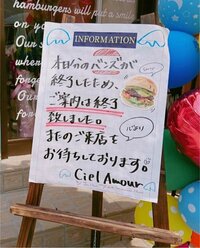 hamburgers will put a smile
on you
INFORMATION
本日分のバンズが
終了したため、
ご案内は終了
致しました。
またのご来店を
心より
お待ちしております。
Ciel Amour